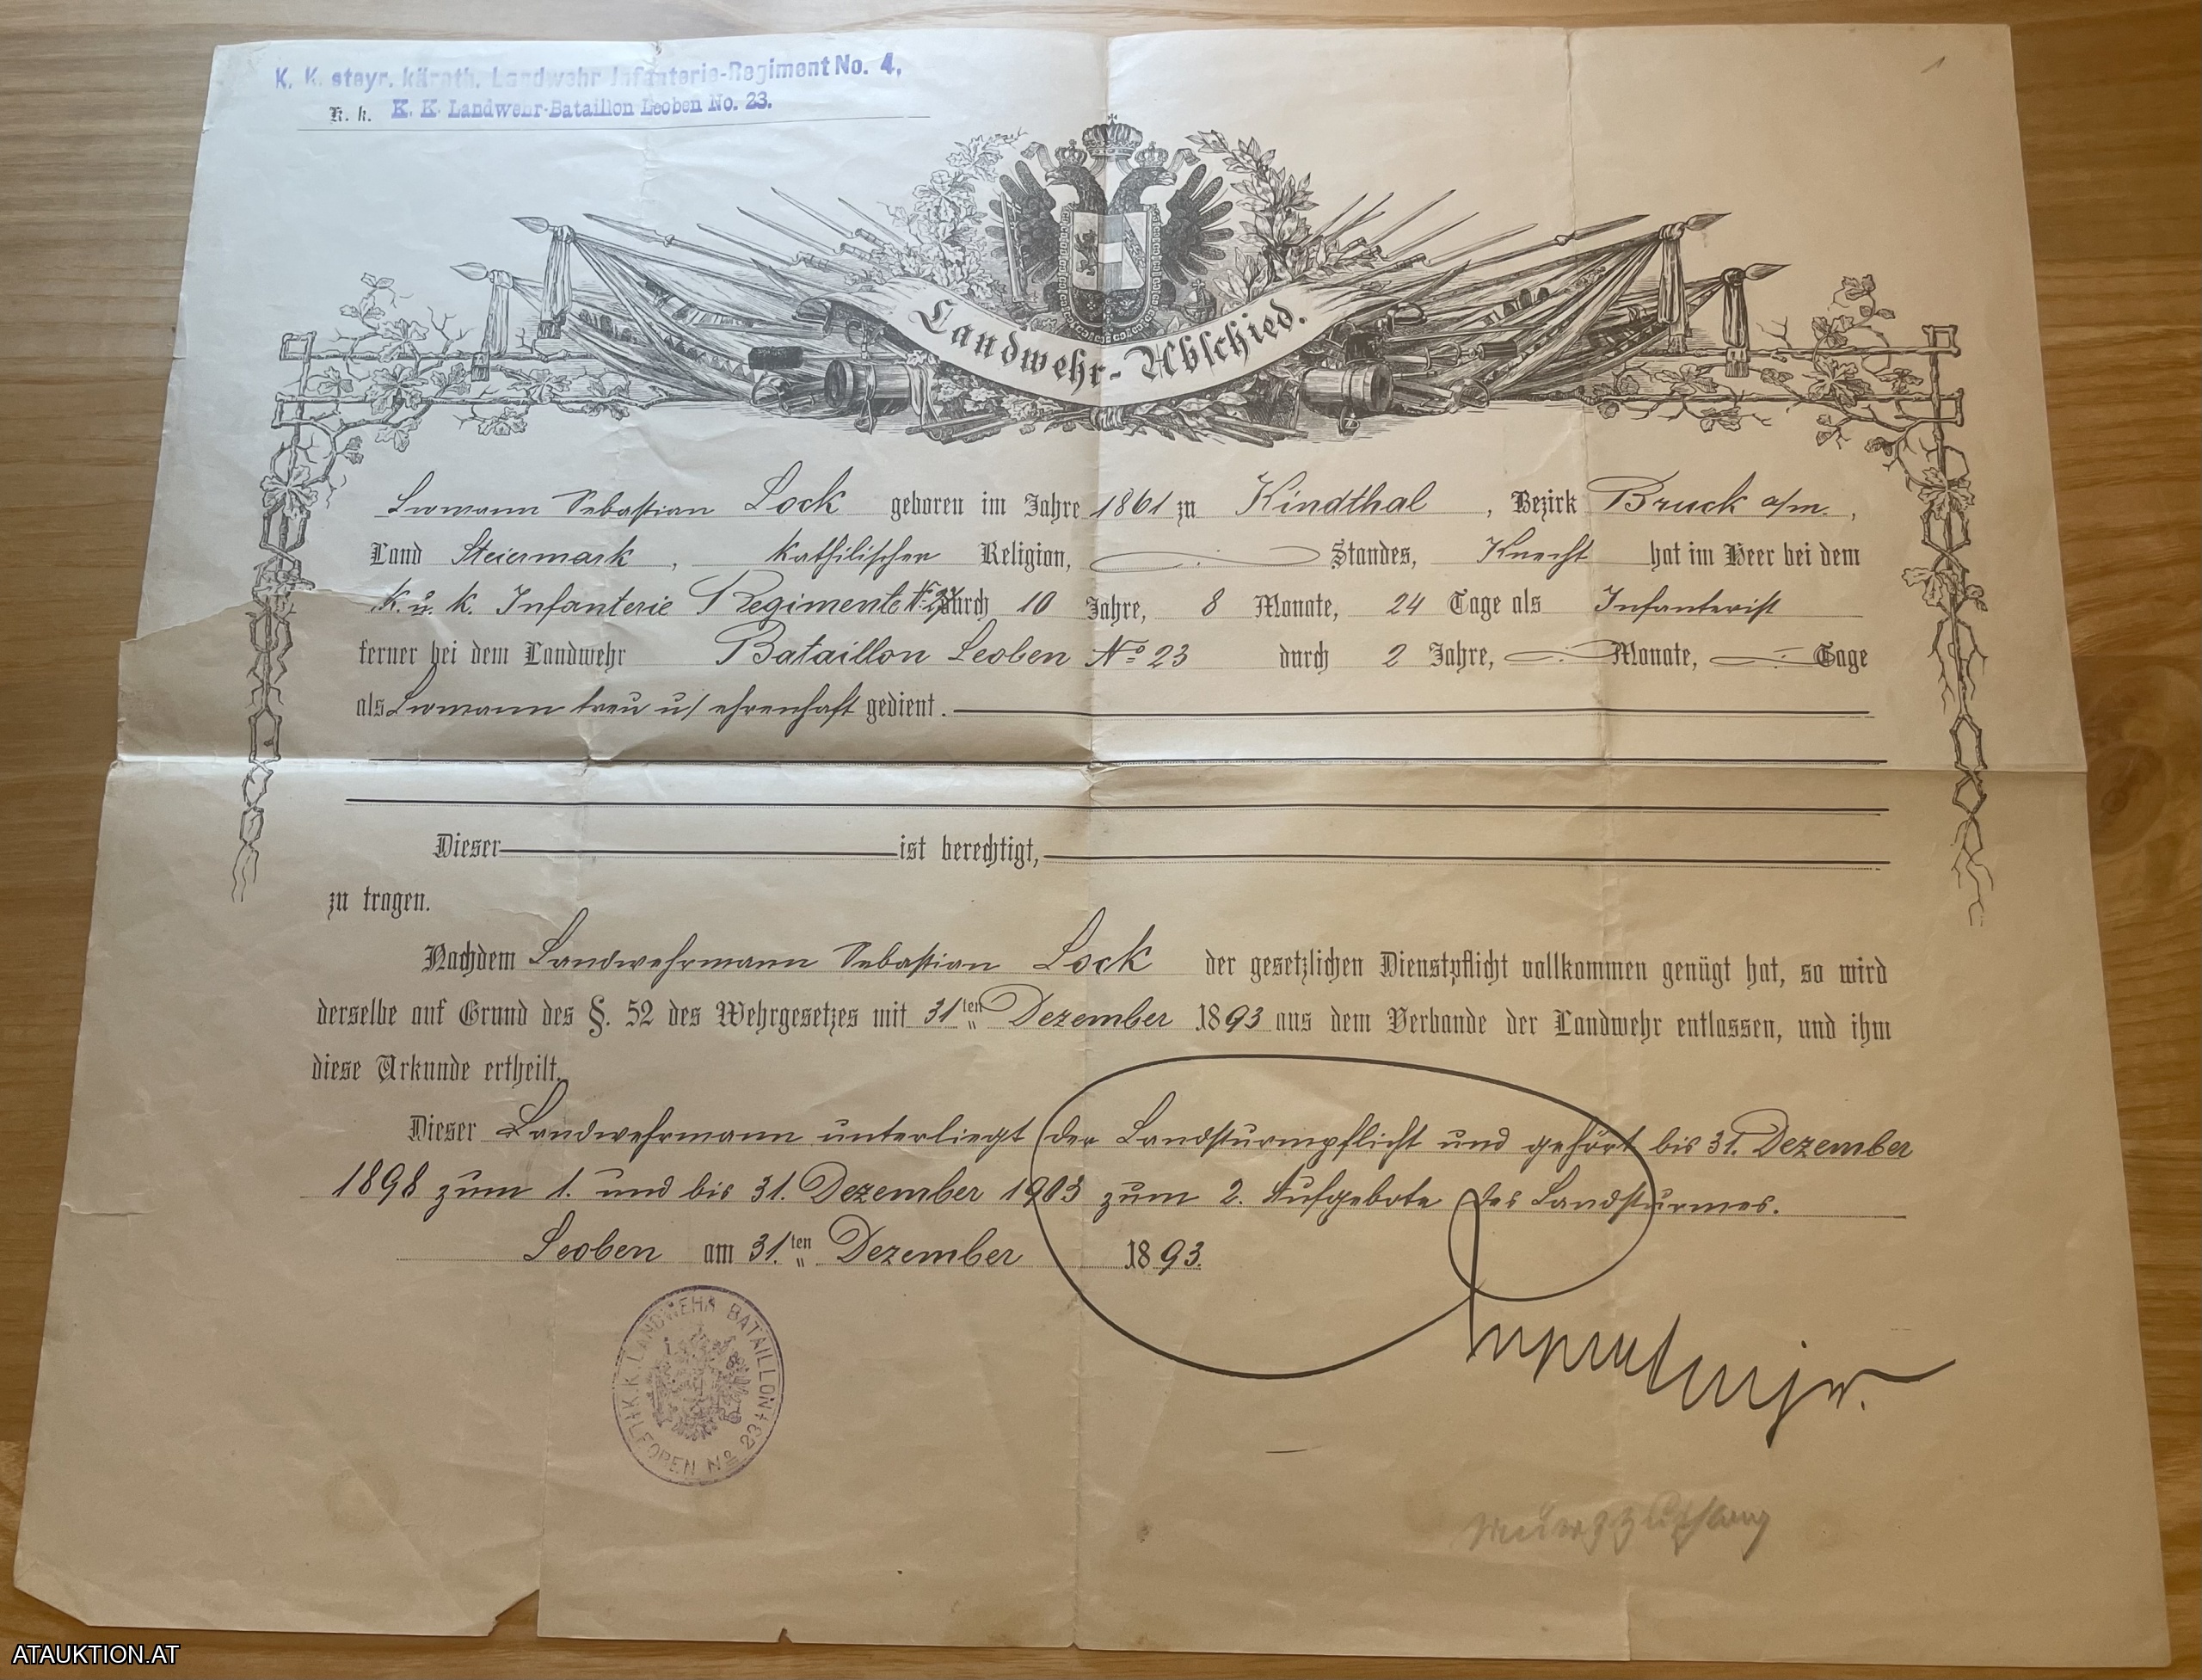 K. K. steyr. kärnth. Landwehr Infanterie-Regiment No. 4,
K. k. K. K. Landwehr-Bataillon Leoben No. 23.
Landwehr-Abschied.
Lwmann Sebastian Lock geboren im Jahre 1861 zu Kindthal, Bezirk Bruck a/m.,
Land Steiermark, katholischer Religion, Standes, Knecht hat im Heer bei dem
K. u. k. Infanterie Regimente durch 10 Jahre, 8 Monate, 24 Tage als Infanterist
ferner bei dem Landwehr Bataillon Leoben No 23 durch 2 Jahre, Monate, Tage
als Lwmann treu u/ ehrenhaft gedient.
Dieser ist berechtigt,
zu tragen.
Nachdem Landwehrmann Sebastian Lock der gesetzlichen Dienstpflicht vollkommen genügt hat, so wird
derselbe auf Grund des §. 52 des Wehrgesetzes mit 31ten Dezember 1893 aus dem Verbande der Landwehr entlassen, und ihm
diese Urkunde ertheilt.
Dieser Landwehrmann unterliegt der Landsturmpflicht und gehört bis 31. Dezember
1898 zum 1. und bis 31. Dezember 1903 zum 2. Aufgebote des Landsturmes.
Leoben am 31.ten Dezember 1893.
K.K. LANDWEHR BATAILLON LEOBEN No 23
ATAUKTION.AT